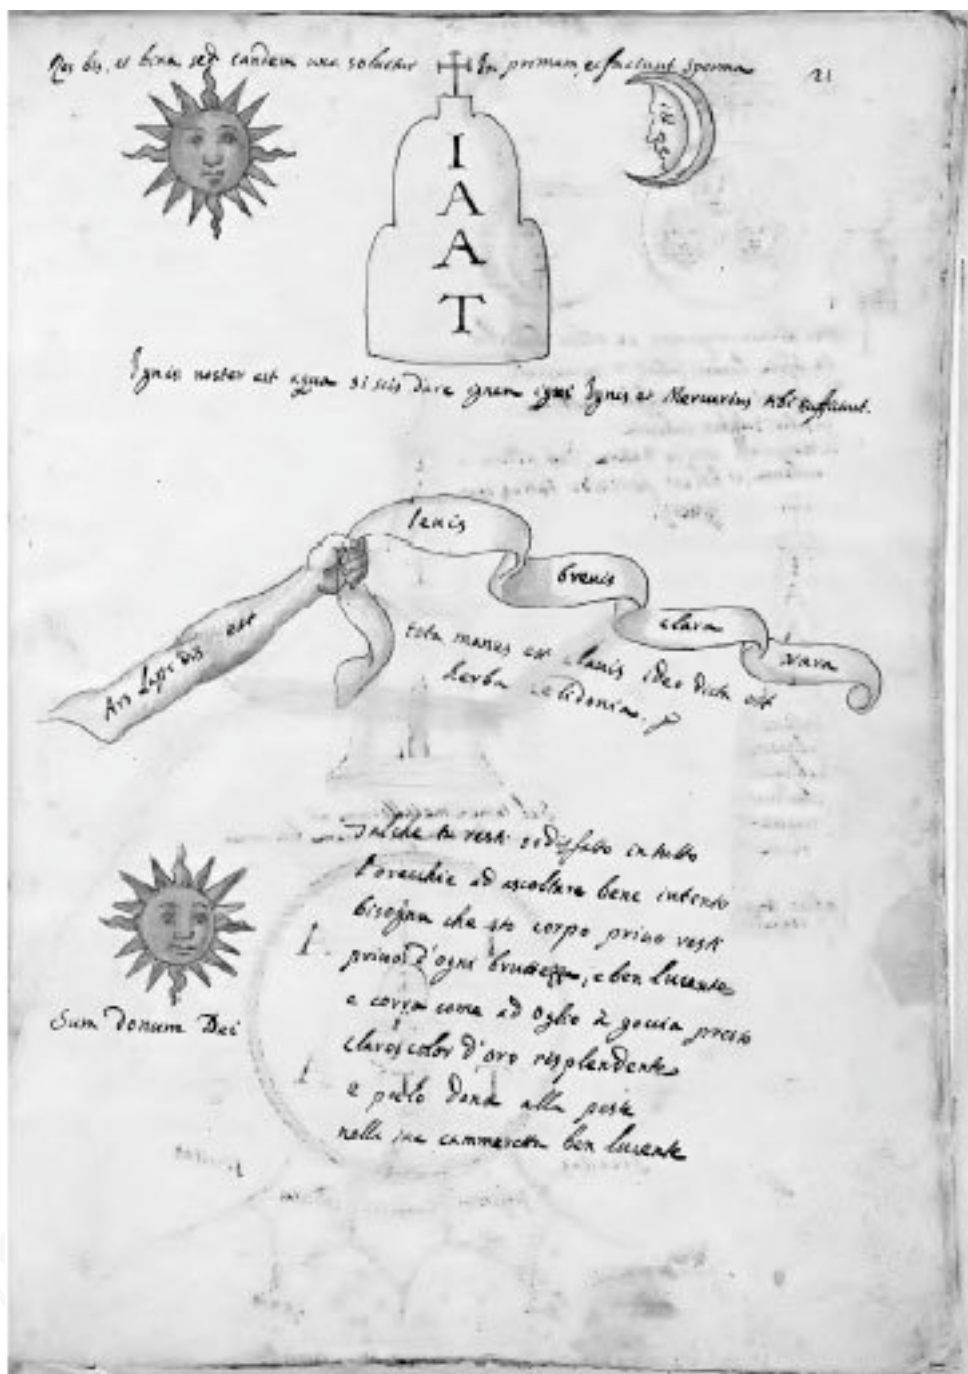 Res bis, et bina sed tandem una solvetur In primam, et faciunt sperma
21
I
A
A
T
Ignis noster est aqua si scis dare ignem igni Ignis et Mercurius tibi sufficiunt.
lenis
brevis
clara
rara
Ars Lapidis est
Ista manus est clavis ideo dicta est
herba celidonia.
Talche tu resti sodisfatto in tutto
l'orecchie ad ascoltare bene intento
bisogna che sto corpo primo resti
privo d'ogni bruttezza, e ben lucente
e corra come ad oglio à goccia presto
color d'oro risplendente
e poi lo dona alla
nella sua cammeretta ben lucente
I.
I
Sum Donum Dei